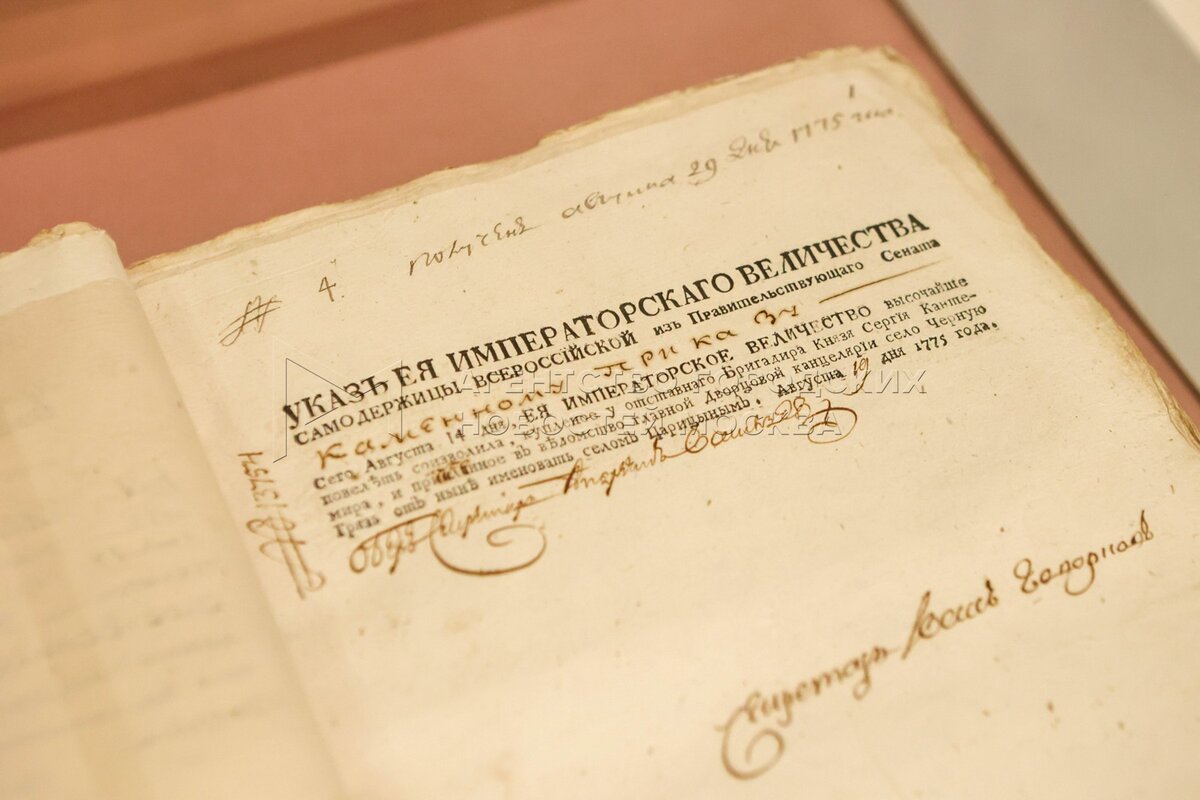 1
получен августа 29 дня 1775 году.
4.
УКАЗЪ ЕЯ ИМПЕРАТОРСКАГО ВЕЛИЧЕСТВА
САМОДЕРЖИЦЫ ВСЕРОССІЙСКОЙ изъ Правительствующаго Сената
каменному приказу
Сего Августа 14 дня ЕЯ ИМПЕРАТОРСКОЕ ВЕЛИЧЕСТВО высочайше
повелѣть соизволила, купленое у отставнаго Бригадира Князя Сергія Канте-
мира, и приписанное въ вѣдомство главной Дворцовой канцеляріи село Черную
Грязь отъ нынѣ именовать селомъ Царицынымъ. Августа 19 дня 1775 года.
Оберъ Секретарь
Секретарь Иванъ
АГЕНТСТВО ГОРОДСКИХ
НОВОСТЕЙ МОСКВА